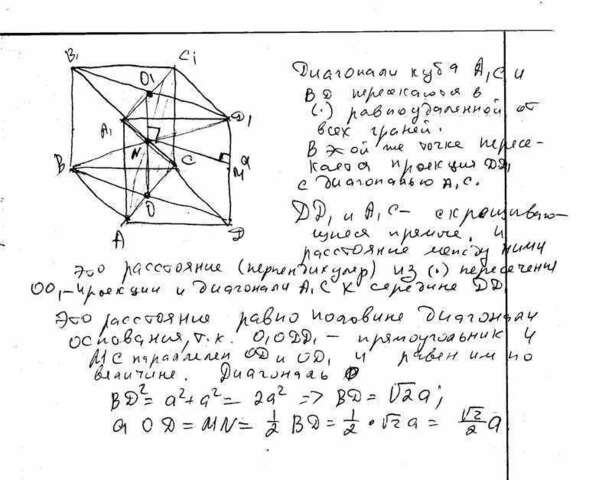 B₁
C₁
O₁
A₁
D₁
N
B
C
a
M
O
A
D
Диагонали куба A₁C и
BD пересекаются в
(·) равноудаленной от
всех граней.
В этой же точке пересе-
кается проекция DD₁
с диагональю A₁C.
DD₁ и A₁C - скрещиваю-
щиеся прямые, и
расстояние между ними
это расстояние (перпендикуляр) из (·) пересечения
OO₁ - проекции и диагонали A₁C к середине DD₁
Это расстояние равно половине диагонали
основания, т.к. O₁ODD₁ - прямоугольник и
MC параллелен OD и OD₁ и равен им по
величине. Диагональ
BD² = a² + a² = 2a² => BD = √2a;
а OD = MN = 1/2 BD = 1/2 · √2a = √2/2 a